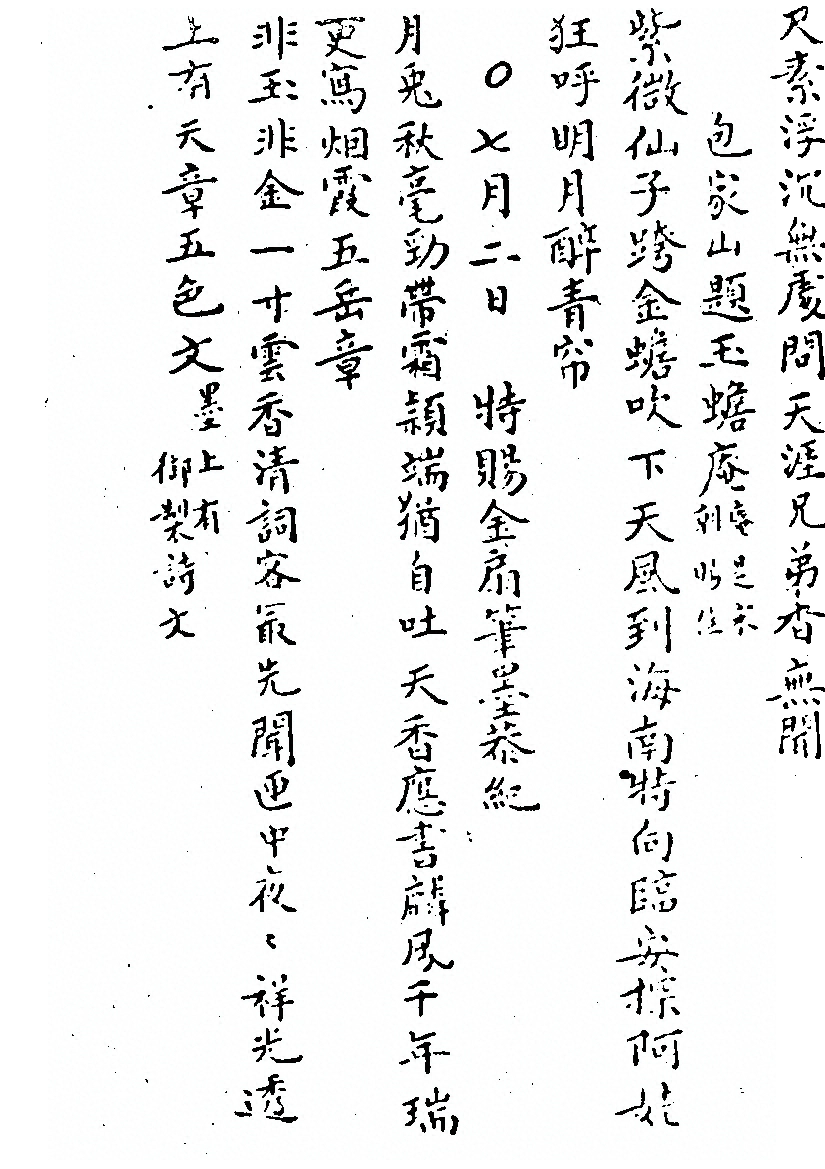 尺素浮沉無處問天涯兄弟杳無聞
包家山題玉蟾庵
紫微仙子跨金蟾吹下天風到海南特向臨安探阿
狂呼明月醉青帘
〇七月二日 特賜金扇筆墨恭紀
月兎秋毫勁帶霜頴端猶自吐天香應書麟鳳千年瑞
更寫烟霞五岳章
非玉非金一寸雲香清詞客最先聞匣中夜〻祥光透
上有天章五色文 墨上有御製詩文